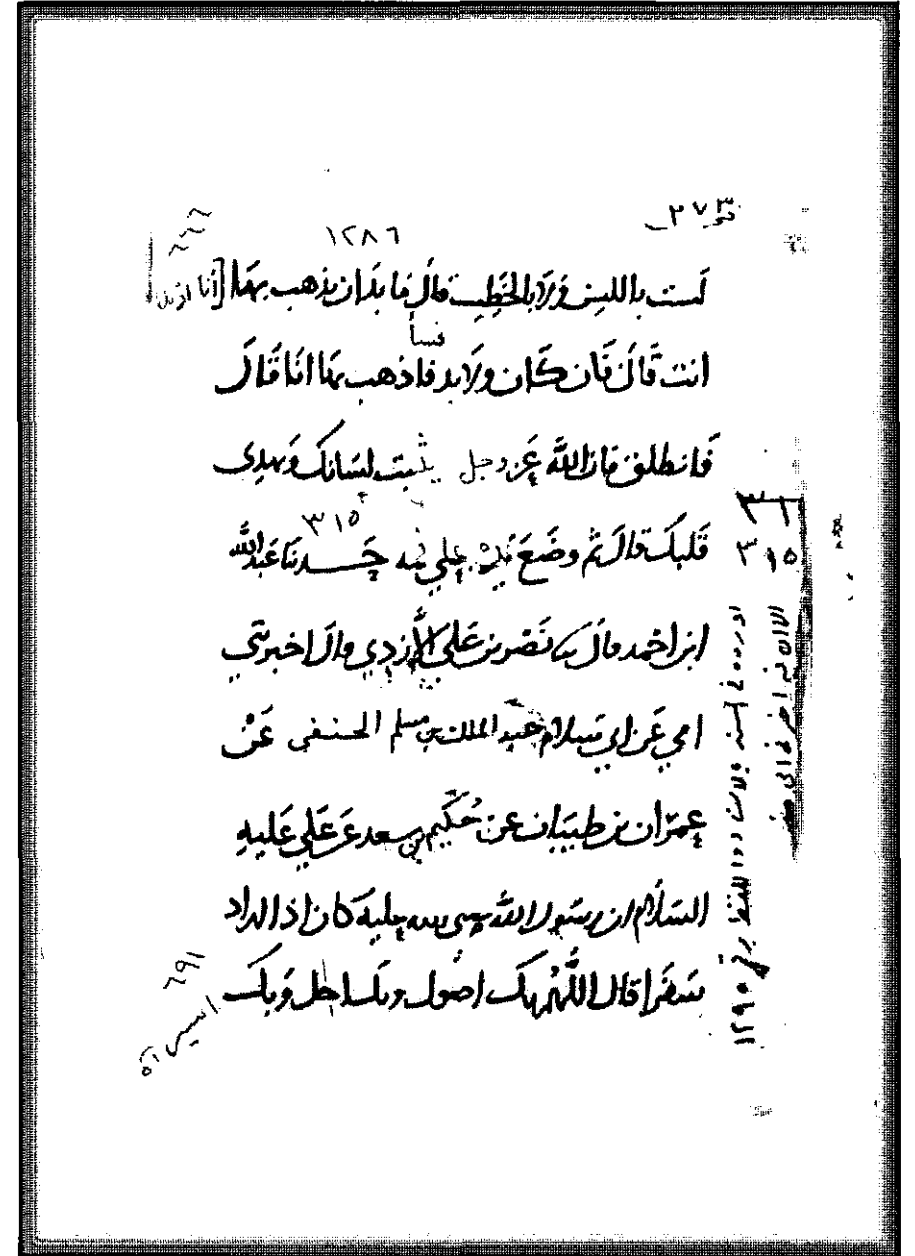 ٢٧٣
١٢٨٦
٦٦٦
لست باللسن ولا بالخطيب قال ما بد ان يذهب بها [أنا او
انت قال فان كان ولا بد فاذهب بها انا قال
فانطلق فان الله عز وجل يثبت لسانك ويهدى
قلبك قال ثم وضع يده علي فيه حدثنا عبد الله
٣١٥
ابن احمد قال نصر بن علي الأزدي قال اخبرني
امي عن ابي سلام عبد الملك بن مسلم الحنفي عن
عمران بن ظبيان عن حكيم بن سعد عن علي عليه
السلام ان رسول الله صلى الله عليه كان اذا اراد
سفرا قال اللهم بك اصول وبك احل وبك
اسير
٦٩١
٣١٥
اورده في
برقم ١٢٩٥
الا ان فيه